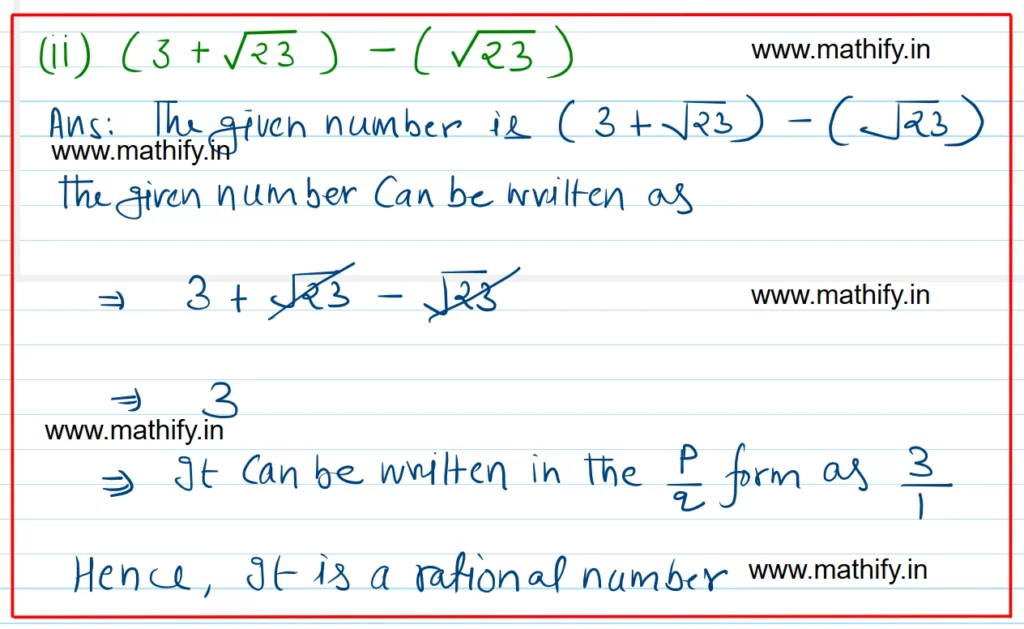 (ii) (3 + √23) - (√23) www.mathify.in
Ans: The given number is (3 + √23) - (√23)
www.mathify.in
the given number Can be written as
⇒ 3 + √23 - √23 www.mathify.in
⇒ 3
www.mathify.in
⇒ It Can be written in the p/q form as 3/1
Hence, It is a rational number www.mathify.in